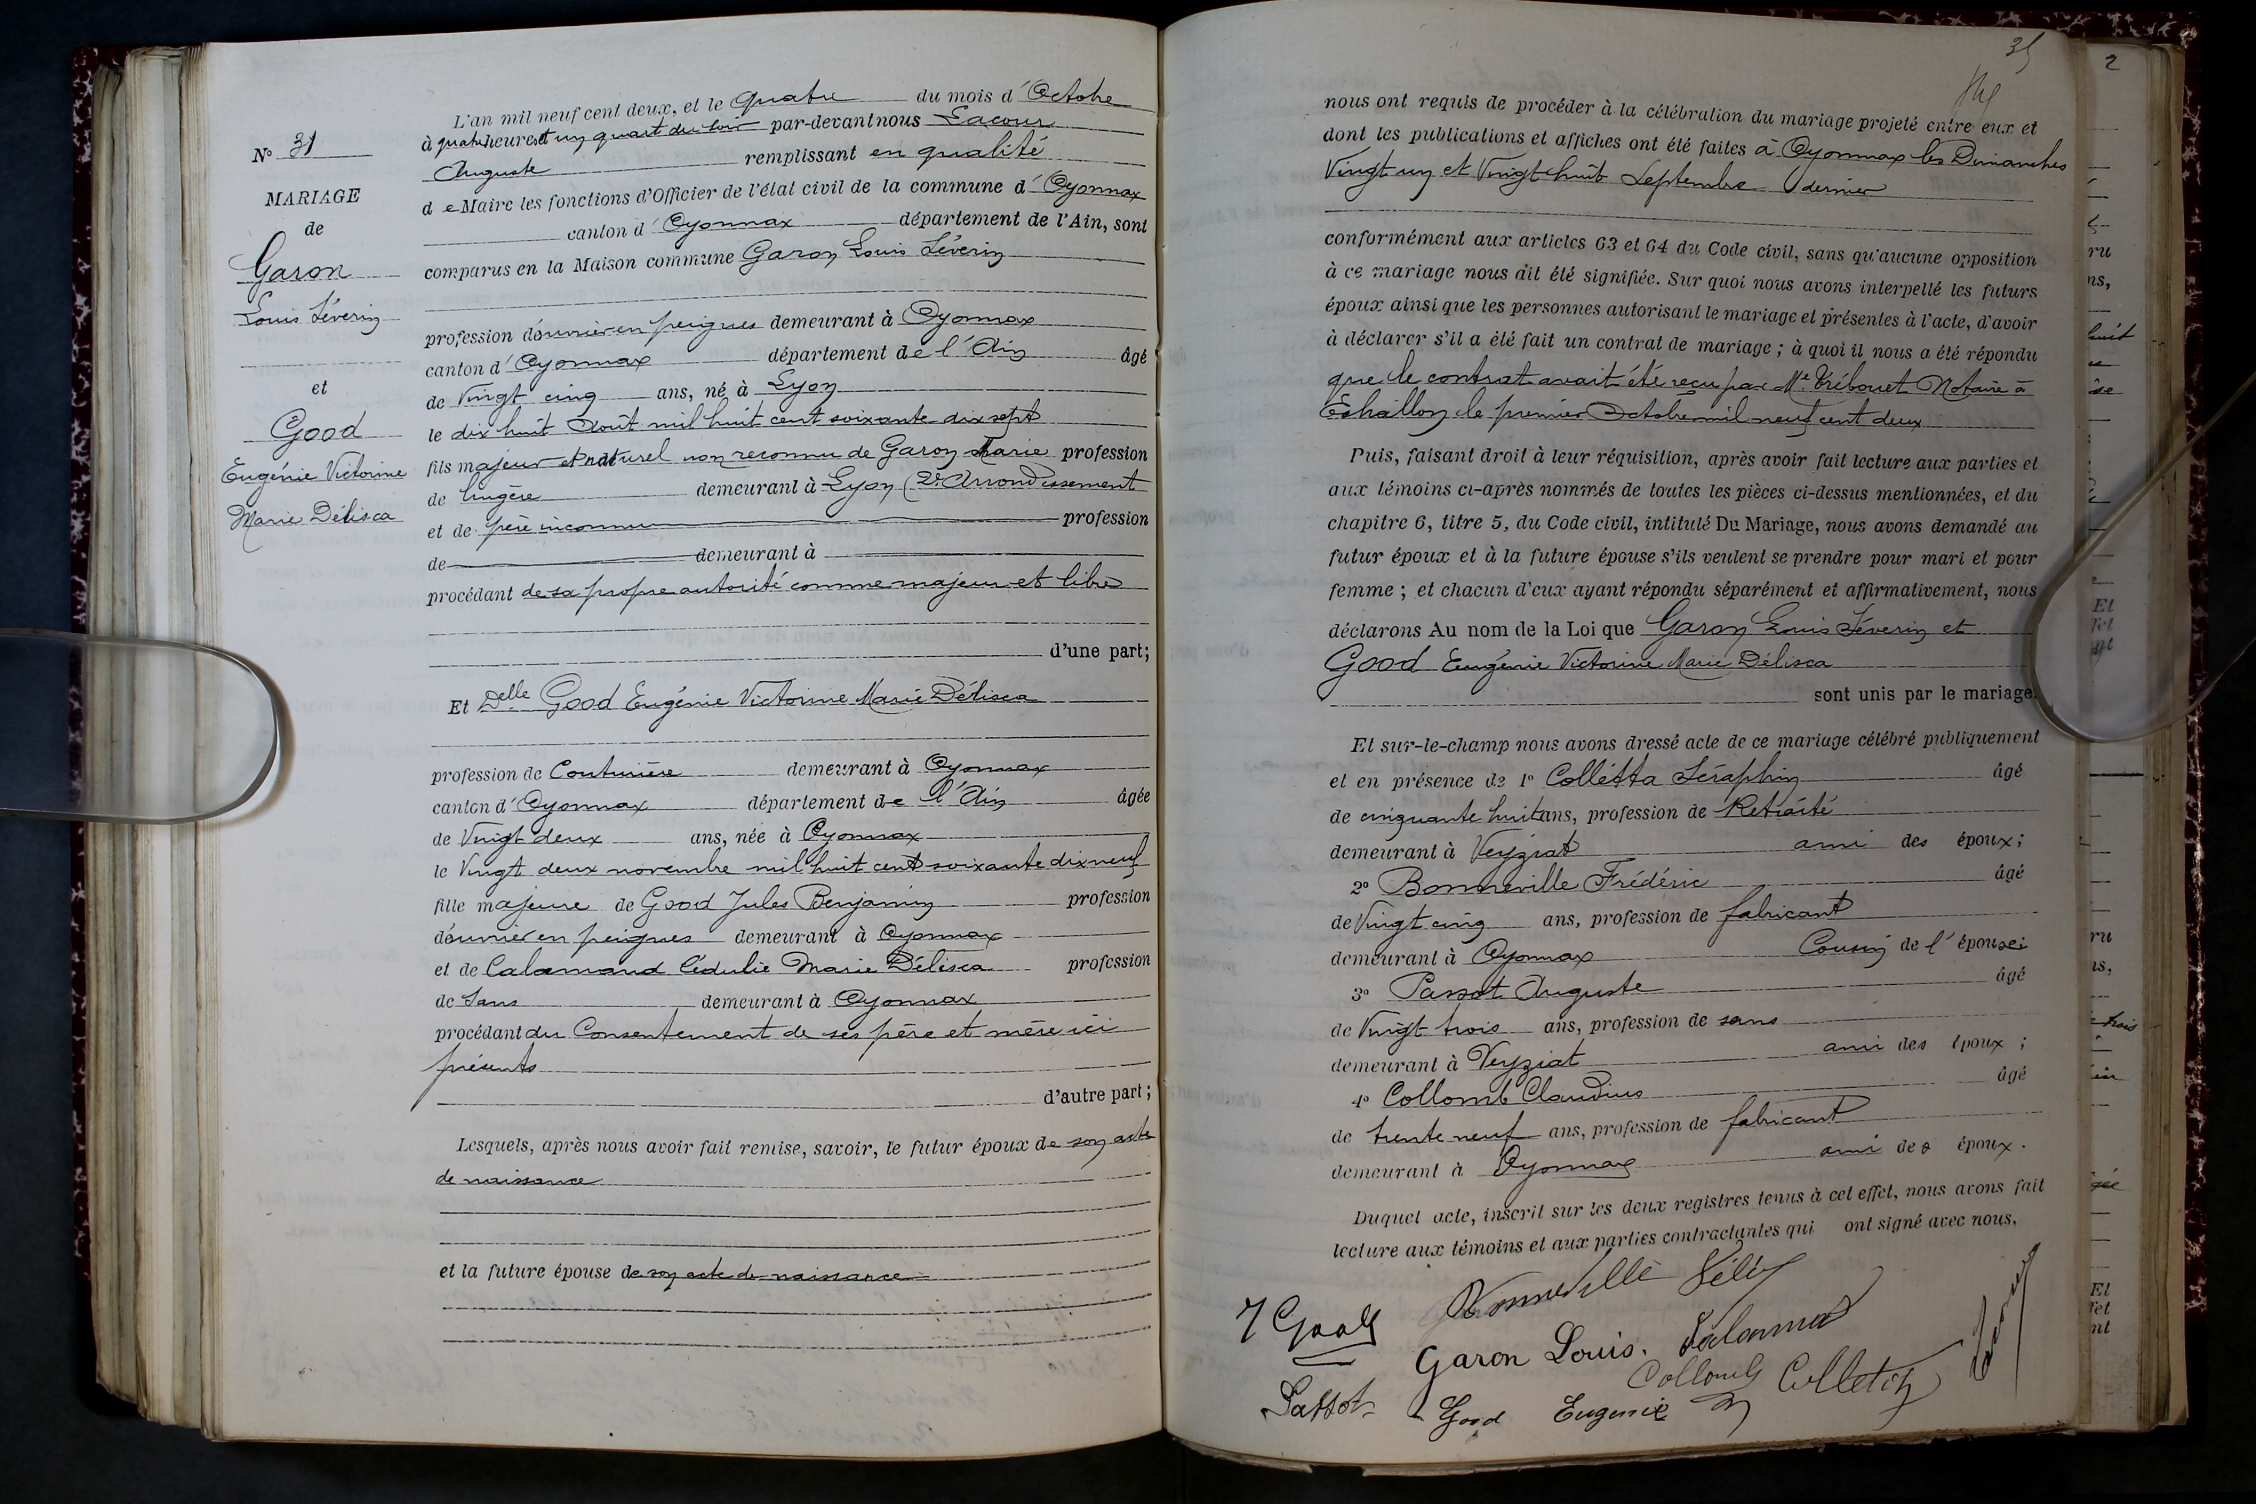 N° 31
MARIAGE
de
Garon
Louis Séverin
et
Good
Eugénie Victorine
Marie Délisca
L'an mil neuf cent deux, et le quatre du mois d'Octobre
à quatre heures et un quart du soir par-devant nous Lacour
Auguste remplissant en qualité
de Maire les fonctions d'Officier de l'état civil de la commune d'Oyonnax
canton d'Oyonnax département de l'Ain, sont
comparus en la Maison commune Garon Louis Séverin
profession d'ouvrier en peignes demeurant à Oyonnax
canton d'Oyonnax département de l'Ain âgé
de Vingt cinq ans, né à Lyon
le dix huit Août mil huit cent soixante dix sept
fils majeur et naturel non reconnu de Garon Marie profession
de lingère demeurant à Lyon (2e Arrondissement
et de père inconnu profession
de demeurant à
procédant de sa propre autorité comme majeur et libre
d'une part;
Et Delle Good Eugénie Victorine Marie Délisca
profession de Couturière demeurant à Oyonnax
canton d'Oyonnax département de l'Ain âgée
de Vingt deux ans, née à Oyonnax
le Vingt deux novembre mil huit cent soixante dix neuf
fille majeure de Good Jules Benjamin profession
d'ouvrier en peignes demeurant à Oyonnax
et de Calamand Cédulie Marie Délisca profession
de sans demeurant à Oyonnax
procédant du Consentement de ses père et mère ici
présents
d'autre part;
Lesquels, après nous avoir fait remise, savoir, le futur époux de son acte
de naissance
et la future épouse de son acte de naissance
35
nous ont requis de procéder à la célébration du mariage projeté entre eux et
dont les publications et affiches ont été faites à Oyonnax les Dimanches
Vingt un et Vingt huit Septembre dernier
conformément aux articles 63 et 64 du Code civil, sans qu'aucune opposition
à ce mariage nous ait été signifiée. Sur quoi nous avons interpellé les futurs
époux ainsi que les personnes autorisant le mariage et présentes à l'acte, d'avoir
à déclarer s'il a été fait un contrat de mariage; à quoi il nous a été répondu
que le contrat avait été reçu par Me Trébouet Notaire à
Échallon le premier Octobre mil neuf cent deux
Puis, faisant droit à leur réquisition, après avoir fait lecture aux parties et
aux témoins ci-après nommés de toutes les pièces ci-dessus mentionnées, et du
chapitre 6, titre 5, du Code civil, intitulé Du Mariage, nous avons demandé au
futur époux et à la future épouse s'ils veulent se prendre pour mari et pour
femme; et chacun d'eux ayant répondu séparément et affirmativement, nous
déclarons Au nom de la Loi que Garon Louis Séverin et
Good Eugénie Victorine Marie Délisca
sont unis par le mariage.
Et sur-le-champ nous avons dressé acte de ce mariage célébré publiquement
et en présence de 1° Collétta Séraphin âgé
de cinquante huit ans, profession de Retraité
demeurant à Veyziat ami des époux;
2° Bonneville Frédéric âgé
de Vingt cinq ans, profession de fabricant
demeurant à Oyonnax Cousin de l'épouse;
3° Passot Auguste âgé
de Vingt trois ans, profession de sans
demeurant à Veyziat ami des époux;
4° Collomb Claudius âgé
de trente neuf ans, profession de fabricant
demeurant à Oyonnax ami des époux.
Duquel acte, inscrit sur les deux registres tenus à cet effet, nous avons fait
lecture aux témoins et aux parties contractantes qui ont signé avec nous.
J Good Bonneville
Garon Louis. Calamand
Collomb Colletta
Passot Good Eugenie
Lacour
2
ru
ns,
huit
Et
fet
ru
us,
trois
Et
fet
nt